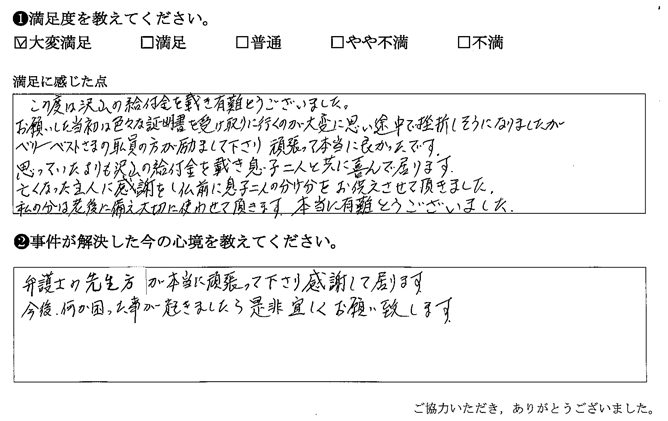 ❶満足度を教えてください。
☑大変満足 □満足 □普通 □やや不満 □不満
満足に感じた点
この度は沢山の給付金を戴き有難とうございました。
お願いした当初は色々な証明書を受け取りに行くのが大変に思い途中で挫折しそうになりましたが
ベリーベストさまの職員の方が励まして下さり 頑張って本当に良かったです。
思っていたよりも沢山の給付金を戴き息子二人と共に喜んで居ります。
亡くなった主人に感謝をし仏前に息子二人の分け分をお供えさせて頂きました。
私の分は老後に備え大切に使わせて頂きます。本当に有難とうございました。
❷事件が解決した今の心境を教えてください。
弁護士の先生方が本当に頑張って下さり感謝して居ります
今後、何か困った事が起きましたら是非宜しくお願い致します。
ご協力いただき，ありがとうございました。